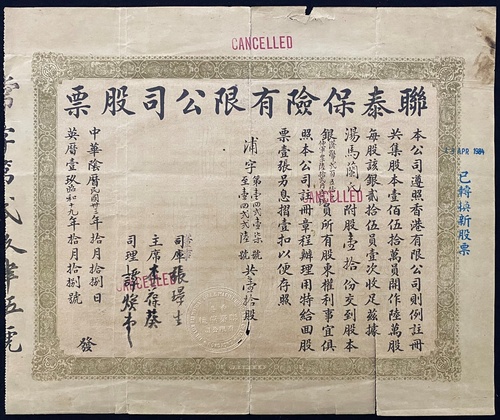 CANCELLED
聯泰保險有限公司股票
本公司遵照香港有限公司則例註冊
共集股本壹佰伍拾萬員開作陸萬股
每股該銀貳拾伍員壹次收足茲據
湯馬蘭氏附股壹拾份交到股本
銀
員所有股東權利事宜俱
照本公司註冊章程辦理用特給回股
票壹張另息摺壹扣以便存照
浦字第壹四弍壹柒號
至壹四弍弍陸號
共壹拾股
CANCELLED
司庫
主席李葆葵
司理
CANCELLED
中華陰曆民國卅三年拾月拾捌日
英曆壹玖年拾月拾捌號
發
APR 1984
已轉換新股票